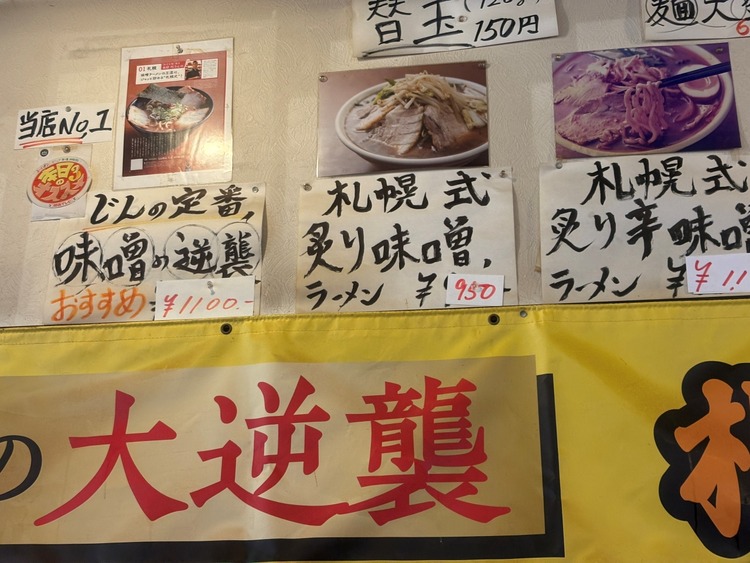 替玉(120g)
150円
当店No,1
01札幌
どんの定番、
味噌の逆襲
おすすめ
¥1100.-
札幌式
炙り味噌、
ラーメン ¥
950
札幌式
炙り辛味噌
ラーメン ¥
¥1.1
の大逆襲